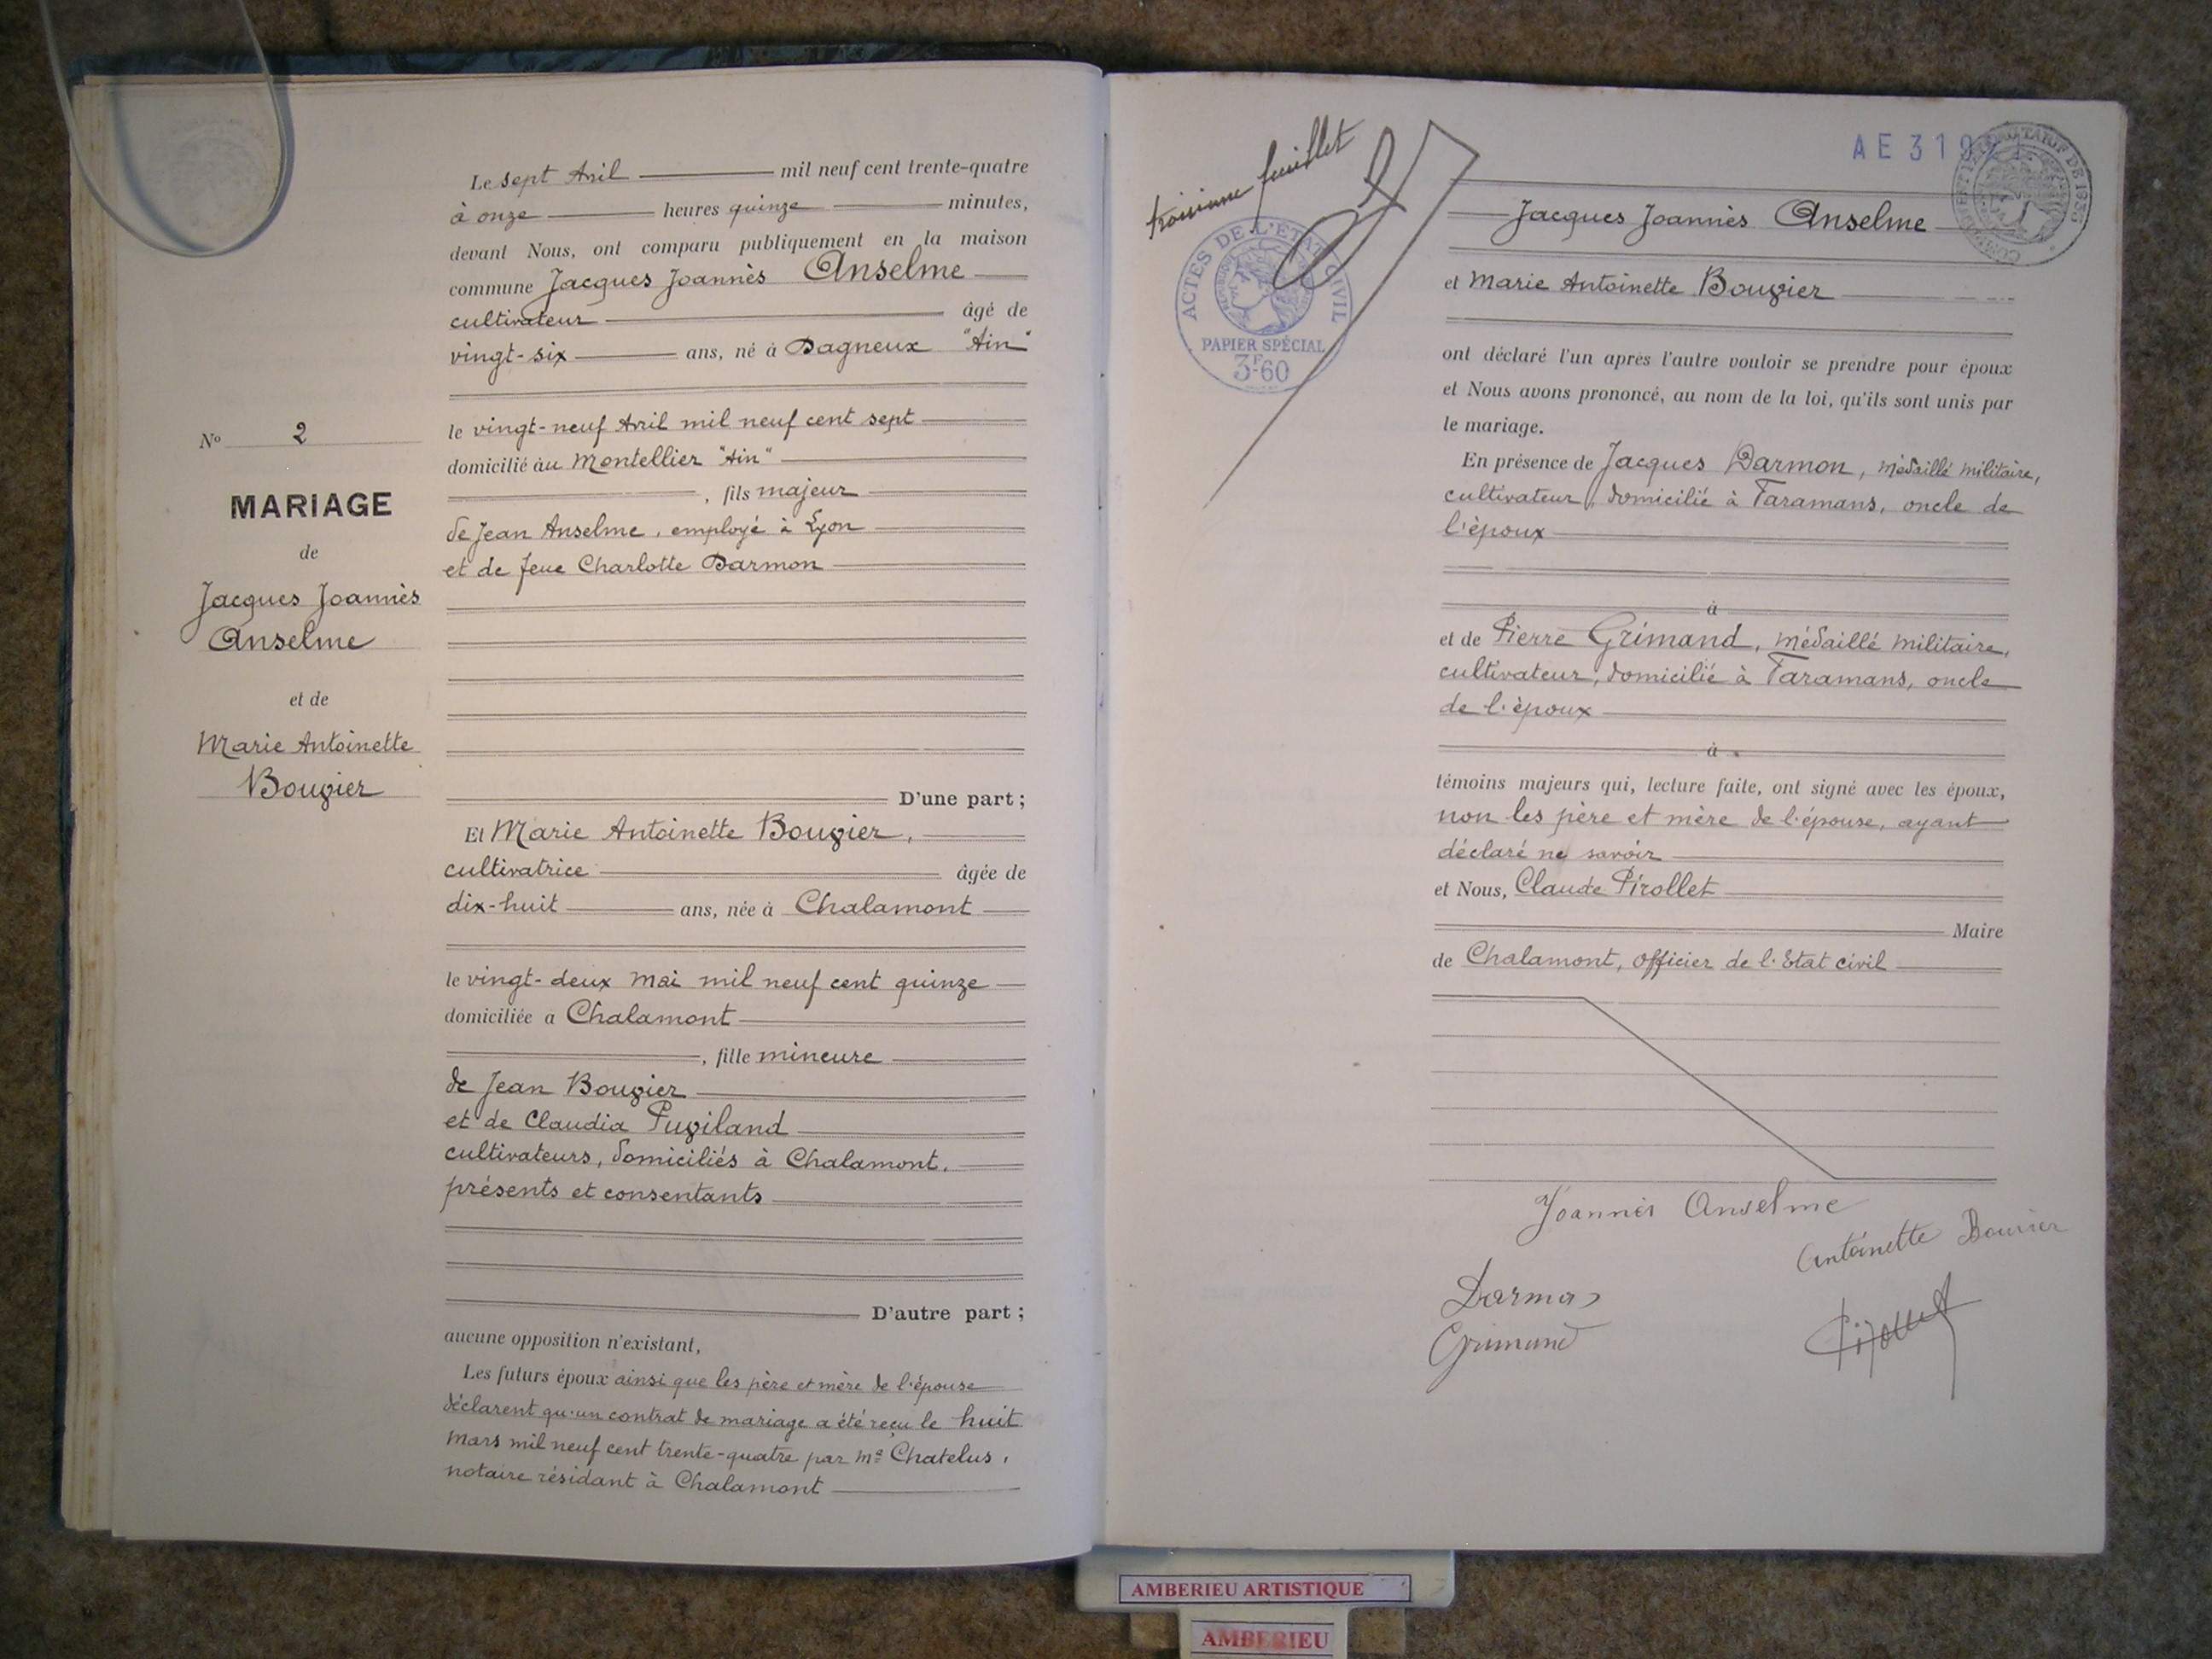 Le sept Avril mil neuf cent trente-quatre
à onze heures quinze minutes,
devant Nous, ont comparu publiquement en la maison
commune Jacques Joannès Anselme
cultivateur âgé de
vingt-six ans, né à Dagneux "Ain"
le vingt-neuf Avril mil neuf cent sept
domicilié au Montellier "Ain"
, fils majeur
de Jean Anselme, employé à Lyon
et de feue Charlotte Darmon
D'une part ;
Et Marie Antoinette Bouvier,
cultivatrice âgée de
dix-huit ans, née à Chalamont
le vingt-deux Mai mil neuf cent quinze
domiciliée à Chalamont
, fille mineure
de Jean Bouvier
et de Claudia Puviland
cultivateurs, domiciliés à Chalamont,
présents et consentants
D'autre part ;
aucune opposition n'existant,
Les futurs époux ainsi que les père et mère de l'épouse
déclarent qu'un contrat de mariage a été reçu le huit
Mars mil neuf cent trente-quatre par Me Chatelus,
notaire résidant à Chalamont
No 2
MARIAGE
de
Jacques Joannès
Anselme
et de
Marie Antoinette
Bouvier
troisième feuillet
ACTES DE L'ÉTAT CIVIL
PAPIER SPÉCIAL
3F60
AE 319
TARIF DE 1933
Jacques Joannès Anselme
et Marie Antoinette Bouvier
ont déclaré l'un après l'autre vouloir se prendre pour époux
et Nous avons prononcé, au nom de la loi, qu'ils sont unis par
le mariage.
En présence de Jacques Darmon, médaillé militaire,
cultivateur, domicilié à Faramans, oncle de
l'époux
à
et de Pierre Grimand, médaillé militaire,
cultivateur, domicilié à Faramans, oncle
de l'époux
à
témoins majeurs qui, lecture faite, ont signé avec les époux,
non les père et mère de l'épouse, ayant
déclaré ne savoir
et Nous, Claude Pirollet
Maire
de Chalamont, Officier de l'Etat civil
Joannès Anselme
Antoinette Bouvier
Darmon
Grimand
Pirollet
AMBERIEU ARTISTIQUE
AMBERIEU